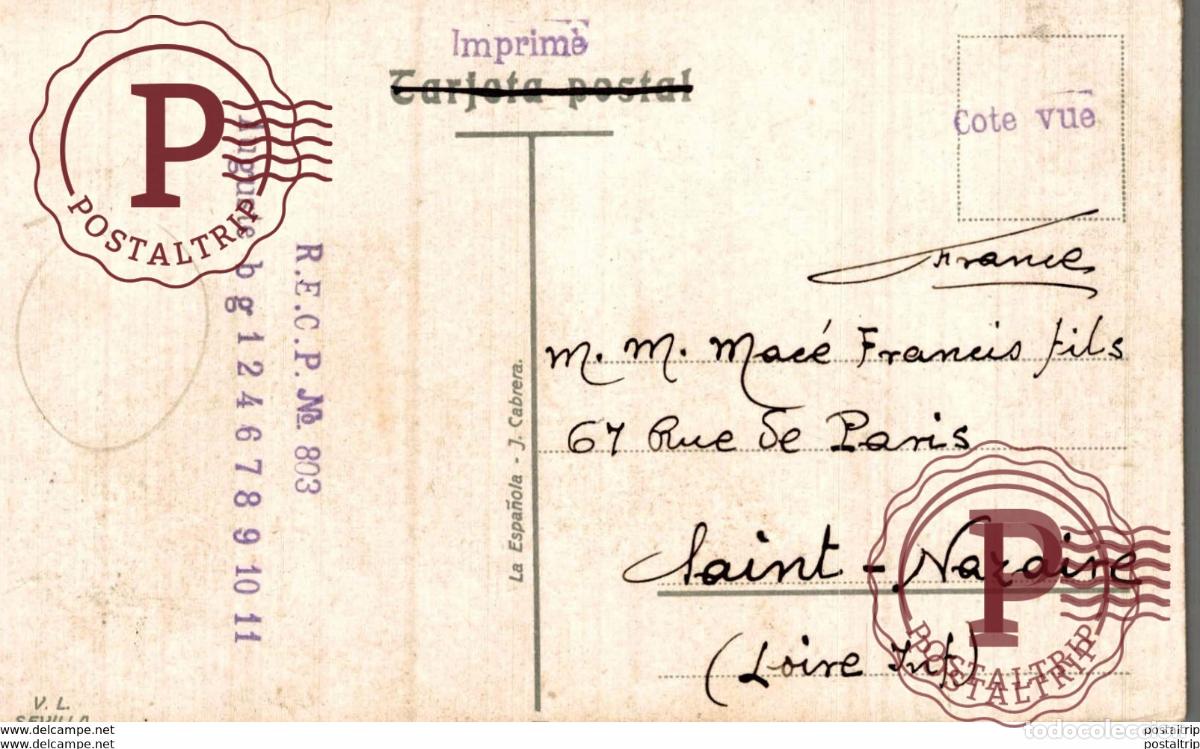 Imprimè
Tarjeta postal
Cote vue
France
M. M. Macé Francis fils
67 Rue de Paris
Saint-Nazaire
(Loire Inf)
La Española - J. Cabrera.
R.E.C.P. № 803
bg 1 2 4 6 7 8 9 10 11
V. L.
SEVILLA
P
POSTALTRIP
P
POSTALTRIP
todocoleccion
www.delcampe.net
www.delcampe.net
postaltrip
postaltrip